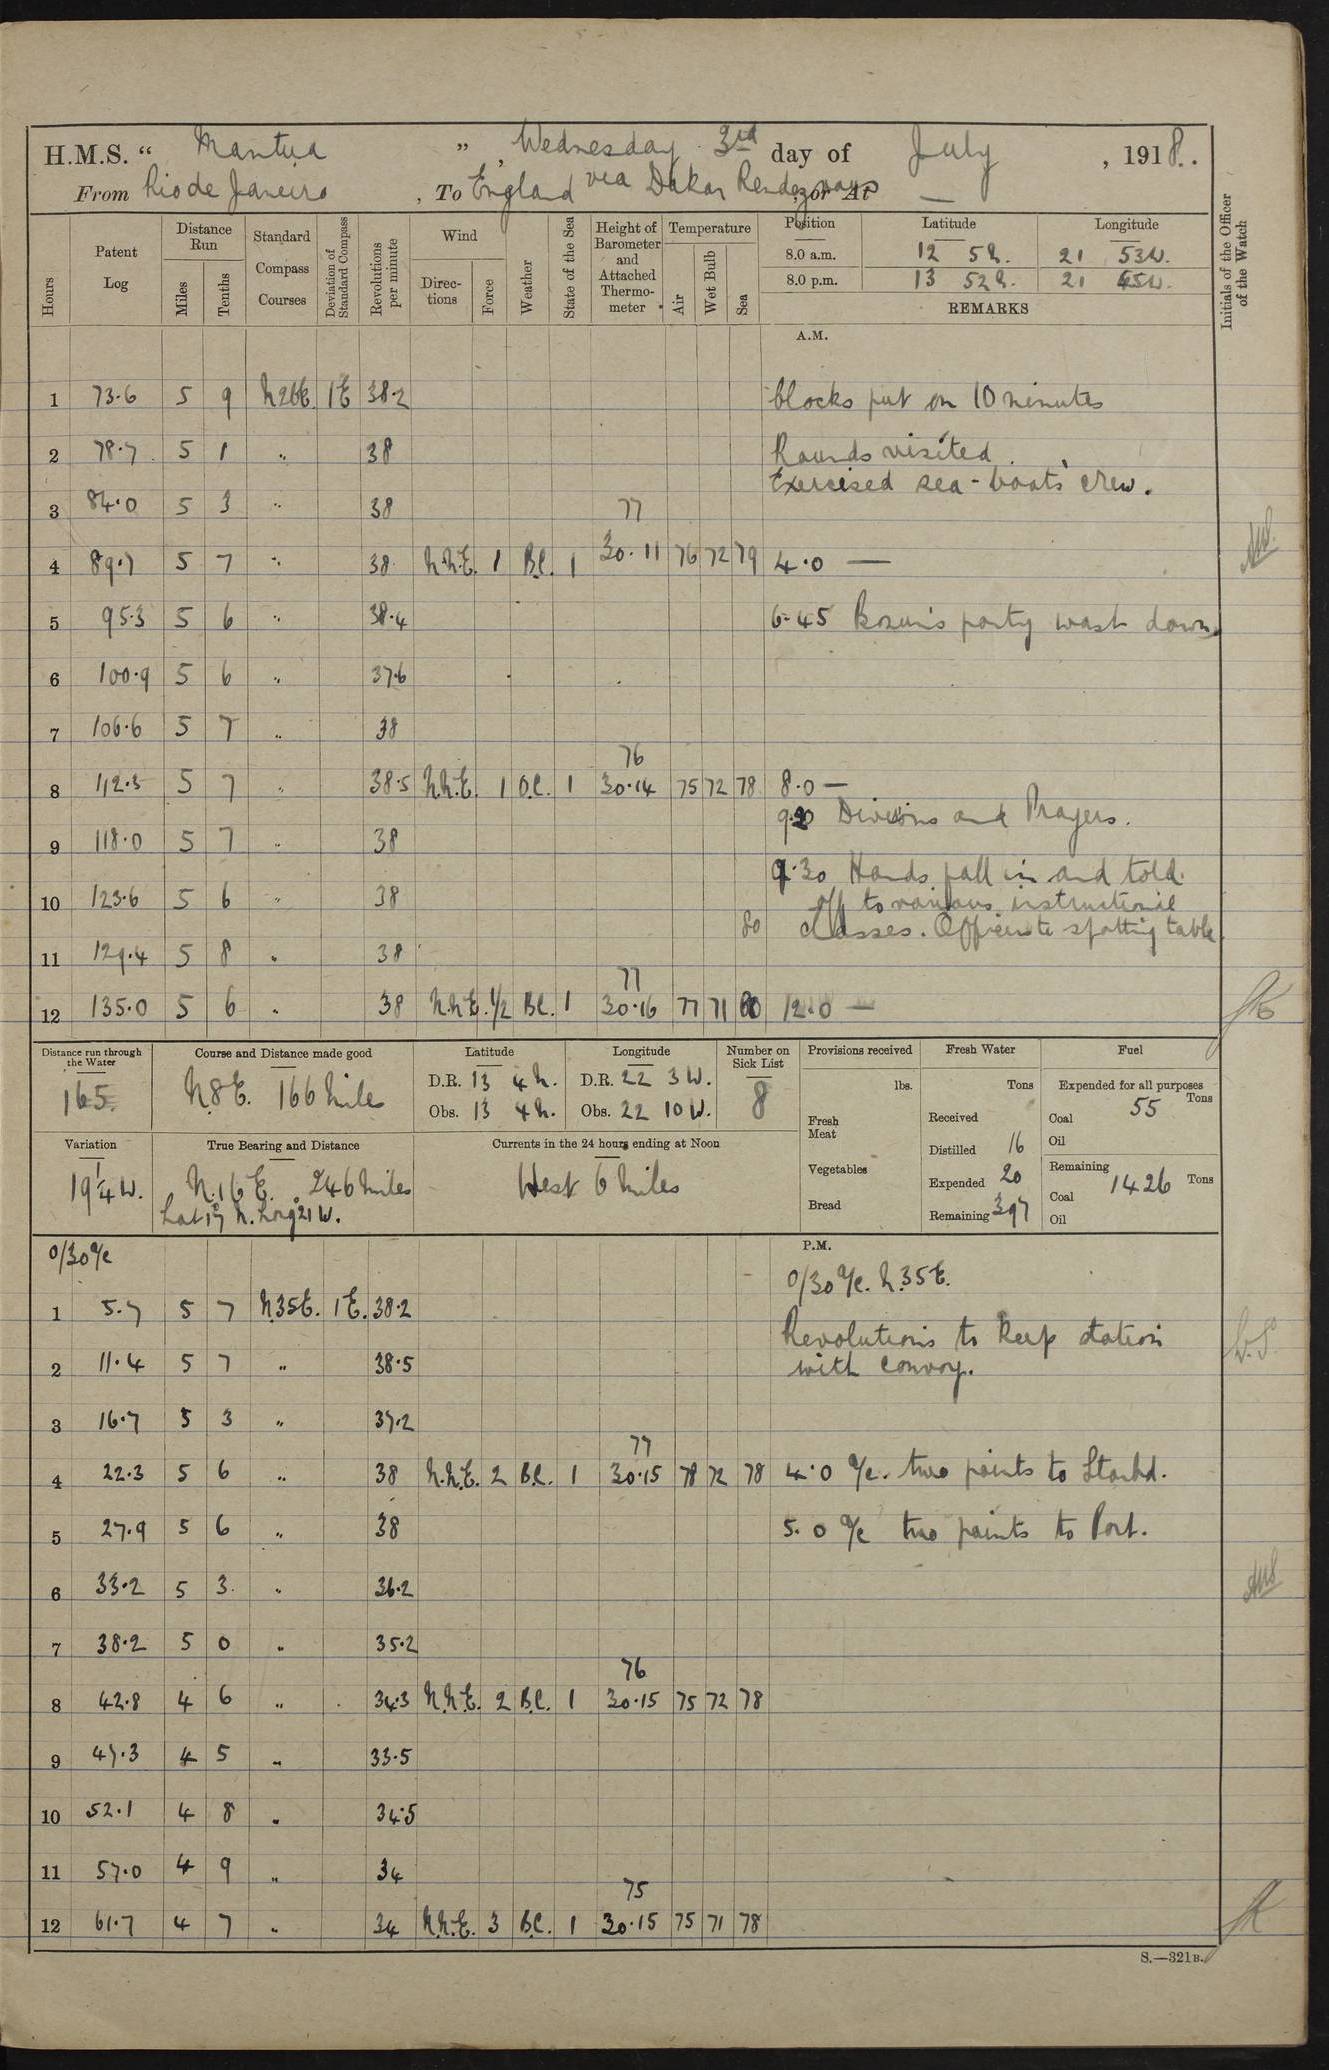 H.M.S. “ Mantua ”, Wednesday 3rd day of July, 1918.
From Rio de Janeiro, To England via Dakar Rendezvous, or At —
Hours
Patent Log
Distance Run
Miles
Tenths
Standard Compass Courses
Deviation of Standard Compass
Revolutions per minute
Wind
Directions
Force
Weather
State of the Sea
Height of Barometer and Attached Thermometer
Temperature
Air
Wet Bulb
Sea
Position Latitude Longitude
8.0 a.m. 12 52. 21 53W.
8.0 p.m. 13 52N. 21 45W.
REMARKS
Initials of the Officer of the Watch
A.M.
1 73.6 5 9 N26E. 1E 38.2 blocks put on 10 minutes
2 78.7 5 1 " 38 Rounds visited.
Exercised sea-boats crew.
3 84.0 5 3 " 38 77
4 89.7 5 7 " 38 N.N.E. 1 B.C. 1 30.11 76 72 79 4.0 —
5 95.3 5 6 " 38.4 6-45 Bosun's party wash down.
6 100.9 5 6 " 37.6
7 106.6 5 7 " 38
76
8 112.3 5 7 " 38.5 N.N.E. 1 O.C. 1 30.14 75 72 78 8.0 —
9.20 Divisions and Prayers.
9 118.0 5 7 " 38
9.30 Hands fall in and told
10 123.6 5 6 " 38 off to various instructional
80 classes. Officers to spotting table.
11 129.4 5 8 " 38
77
12 135.0 5 6 " 38 N.N.E. 1/2 B.C. 1 30.16 77 71 80 12.0 —
Distance run through the Water
165
Course and Distance made good
N8E. 166 Miles
Latitude
D.R. 13 4N.
Obs. 13 4N.
Longitude
D.R. 22 3W.
Obs. 22 10W.
Number on Sick List
8
Provisions received
lbs.
Fresh Meat
Vegetables
Bread
Fresh Water
Tons
Received
Distilled 16
Expended 20
Remaining 397
Fuel
Expended for all purposes
55 Tons
Coal
Oil
Remaining 1426 Tons
Coal
Oil
Variation
19 1/4 W.
True Bearing and Distance
N.16E. 246 Miles
Lat 17 N. Long 21 W.
Currents in the 24 hours ending at Noon
West 6 Miles
P.M.
0/30 a/c
0/30 a/c. N.35E.
1 5.7 5 7 N35E. 1E. 38.2
Revolutions to keep station
2 11.4 5 7 " 38.5 with convoy.
3 16.7 5 3 " 37.2
77
4 22.3 5 6 " 38 N.N.E. 2 B.C. 1 30.15 78 72 78 4.0 a/c. two points to Starbd.
5 27.9 5 6 " 38 5.0 a/c two points to Port.
6 33.2 5 3 " 36.2
7 38.2 5 0 " 35.2
76
8 42.8 4 6 " 34.3 N.N.E. 2 B.C. 1 30.15 75 72 78
9 47.3 4 5 " 33.5
10 52.1 4 8 " 34.5
11 57.0 4 9 " 34
75
12 61.7 4 7 " 34 N.N.E. 3 B.C. 1 30.15 75 71 78
S.—321B.